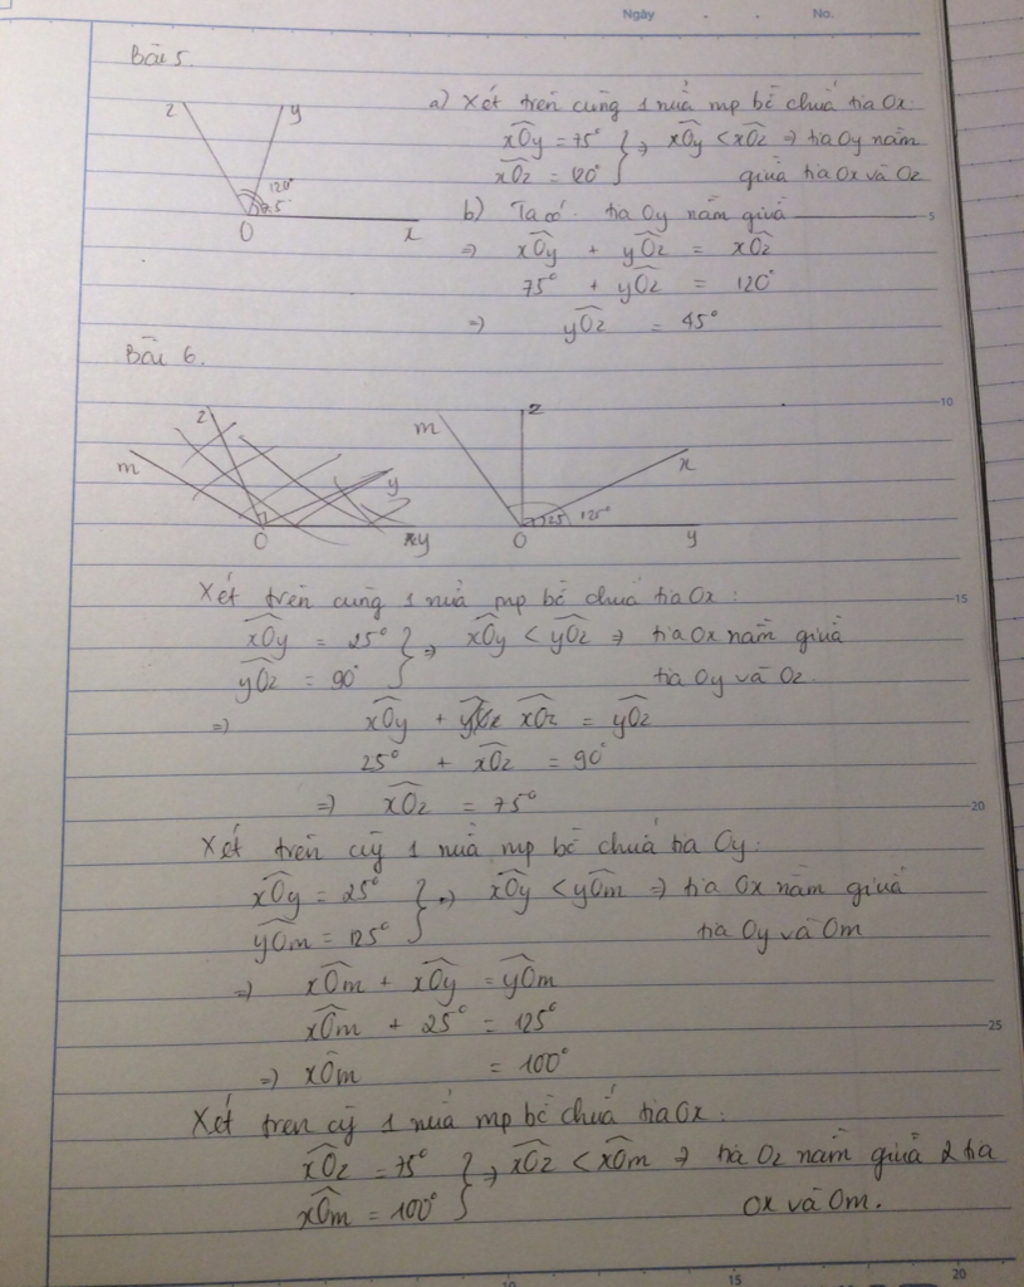 Ngày . . No.
Bài 5.
z y
120°
75°
O x
a) Xét trên cùng 1 nửa mp bờ chứa tia Ox:
xOy = 75° } => xOy < xOz => tia Oy nằm
xOz = 120° giữa tia Ox và Oz
b) Ta có: tia Oy nằm giữa 5
=> xOy + yOz = xOz
75° + yOz = 120°
=> yOz = 45°
Bài 6.
10
z
m y
O y
m z x
25 125°
O y
Xét trên cùng 1 nửa mp bờ chứa tia Ox: 15
xOy = 25° } => xOy < yOz => tia Ox nằm giữa
yOz = 90° tia Oy và Oz.
=> xOy + xOz = yOz
25° + xOz = 90°
=> xOz = 75° 20
Xét trên cg 1 nửa mp bờ chứa tia Oy:
xOy = 25° } => xOy < yOm => tia Ox nằm giữa
yOm = 125° tia Oy và Om
=> xOm + xOy = yOm
xOm + 25° = 125° 25
=> xOm = 100°
Xét tren cg 1 nửa mp bờ chứa tia Ox:
xOz = 75° } => xOz < xOm => tia Oz nằm giữa 2 tia
xOm = 100° Ox và Om.
10 15 20